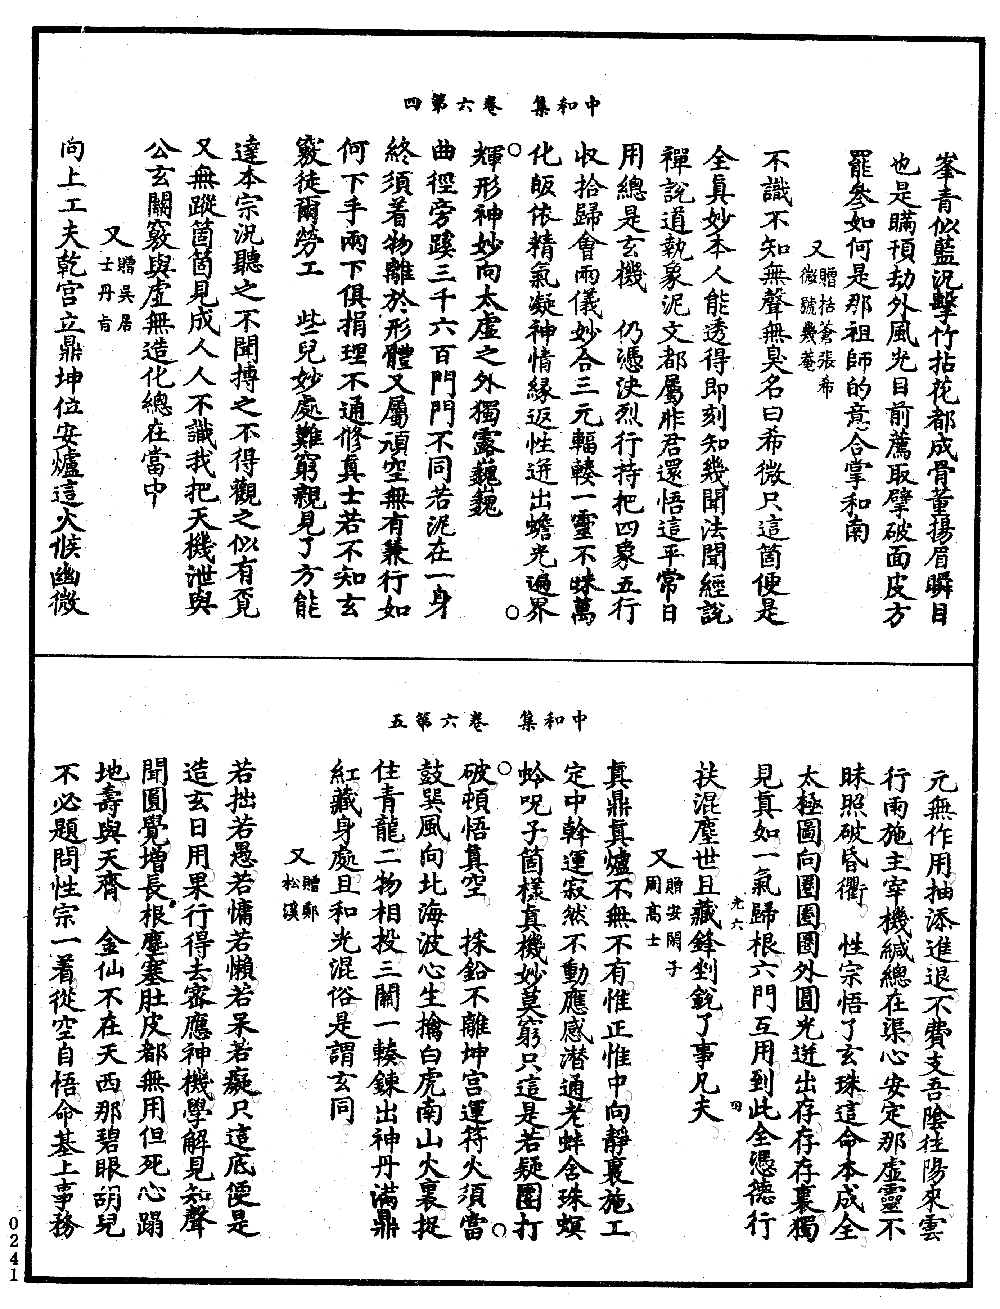 中和集　卷六第四
峯青似藍況擊竹拈花都成骨董揚眉瞬目
也是瞞預劫外風光目前薦取擘破面皮方
罷參如何是那祖師的意合掌和南
又 贈括蒼張希
微號幾菴
不識不知無聲無臭名曰希微只這箇便是
全真妙本人能透得即刻知幾聞法聞經說
禪說道執象泥文都屬非君還悟這平常日
用總是玄機　仍憑決烈行持把四象五行
收拾歸會兩儀妙合三元輻輳一靈不昧萬
化皈依精氣凝神情緣返性迸出蟾光遍界
輝形神妙向太虛之外獨露巍巍
曲徑旁蹊三千六百門門不同若泥在一身
終須着物離於形體又屬頑空無有兼行如
何下手兩下俱捐理不通修真士若不知玄
竅徒爾勞工　些兒妙處難窮親見了方能
達本宗況聽之不聞搏之不得觀之似有覓
又無蹤箇箇見成人人不識我把天機泄與
公玄關竅與虛無造化總在當中
又 贈吳居
士丹肯
向上工夫乾宮立鼎坤位安爐這火候幽微
中和集　卷六第五
元無作用抽添進退不費支吾陰往陽來雲
行雨施主宰機緘總在渠心安定那虛靈不
昧照破昏衢　性宗悟了玄珠這命本成全
太極圖向圈圈圈外圓光迸出存存存裏獨
見真如一氣歸根六門互用到此全憑德行
光六　四
扶混塵世且藏鋒剉銳了事凡夫
又 贈安閑子
周高士
真鼎真爐不無不有惟正惟中向靜裏施工
定中斡運寂然不動應感潛通老蚌含珠螟
蛉呪子箇樣真機妙莫窮只這是若疑團打
破頓悟真空　採鉛不離坤宮運符火須當
鼓巽風向北海波心生擒白虎南山火裏捉
住青龍二物相投三關一輳鍊出神丹滿鼎
紅藏身處且和光混俗是謂玄同
又 贈鄭
松溪
若拙若愚若慵若懶若呆若癡只這底便是
造玄日用果行得去密應神機學解見知聲
聞圓覺增長根塵塞肚皮都無用但死心蹋
地壽與天齊　金仙不在天西那碧眼胡兒
不必題問性宗一着從空自悟命基上事務
0241